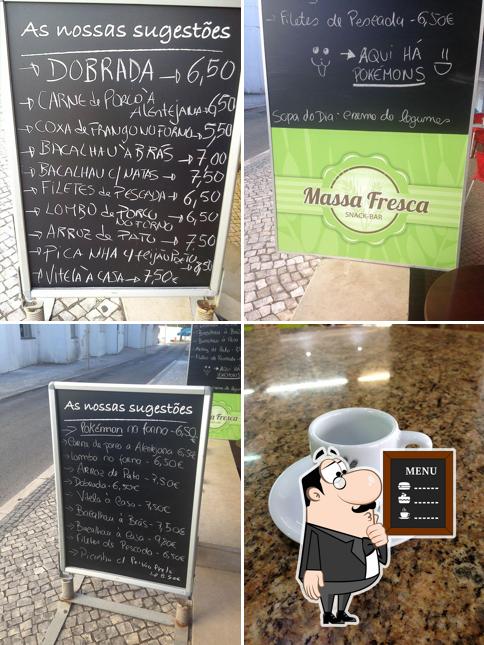 As nossas sugestões
→ DOBRADA → 6,50
→ CARNE de PORCO À
ALENTEJANA → 6,50
→ COXA de FRANGO NO FORNO → 5,50
→ BACALHAU À BRÁS → 7,00
→ BACALHAU C/ NATAS → 7,50
→ FILETES de PESCADA → 6,50
→ LOMBO de PORCO
NO FORNO → 6,50
→ ARROZ de PATO → 7,50
→ PICANHA C/ FEIJÃO PRETO → 8,50
→ VITELA À CASA → 7,50€
→ Filetes de Pescada - 6,50€
→ AQUI HÁ
POKÉMONS
Sopa do Dia - creme de legumes
Massa Fresca
SNACK-BAR
As nossas sugestões
→ Pokémon no forno - 6,50
→ Carne de porco à Alentejana 6,50
→ Lombo no forno - 6,50€
→ Arroz de Pato - 7,50€
→ Dobrada - 6,50€
→ Vitela à Casa - 7,50€
→ Bacalhau à Brás - 7,50€
→ Bacalhau à Casa - 9,00€
→ Filetes de Pescada - 6,50€
→ Picanha c/ Feijão Preto
8,50€
AQUI HÁ
POKÉMONS
Massa Fresca
MENU